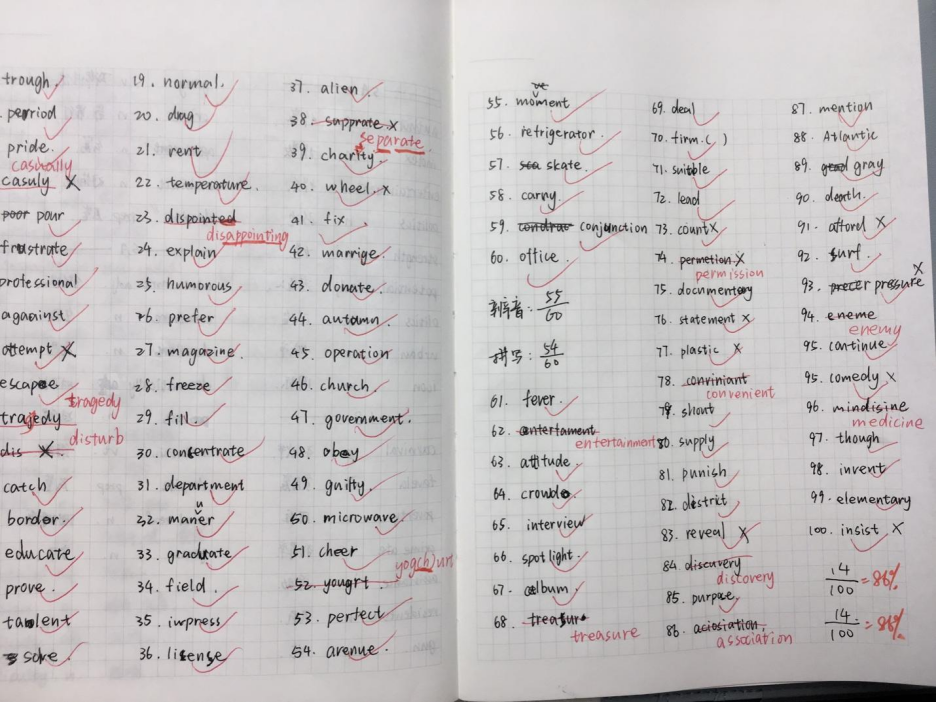 trough
perriod
pride.
casually
casuly X
poor pour
frustrate
professional
againinst
attempt X
escapoe
tragedy
tragedy
disturb
dis X.
catch
border.
educate
prove.
tablent
score.
19. normal.
20. drag
21. rent
22. temperature.
23. dispointed
disappointing
24. explain
25. humorous
26. prefer
27. magazine.
28. freeze
29. fill.
30. concentrate
31. department
n
32. maner
33. graduate
34. field.
35. impress
36. lisense
37. alien.
38. supprate X
separate.
39. charity.
40. wheel. X
41. fix
42. marrige.
43. donate.
44. autumn.
45. operation
46. church.
47. government.
48. obey
49. guilty.
50. microwave.
51. cheer
yog(h)urt
52. yougrt.
53. perfect.
54. avenue.
ve
55. moment
56. refrigerator.
57. sca skate.
58. carry.
59. conjunction
60. office.
听音: 55/60
拼写: 54/60
61. fever.
62. entertament
entertainment
63. attitude.
64. crowd
65. interview
66. spotlight.
67. album.
68. treasur
treasure
69. deal
70. firm.( )
71. suitble
72. lead
73. count X
74. permetion X
permission
75. documentary
76. statement X
77. plastic X
78. conviniant
convenient
79. shout
80. supply
81. punish
82. district
83. reveal X
84. discuvery
discovery
85. purpose
86. aciosiation.
association
87. mention
88. Atlantic
89. gray
90. death.
91. afford X
92. surf.
X
93. pressure
94. eneme
enemy
95. continue
95. comedy X
96. mindisine
medicine
97. though
98. invent
99. elementary
100. insist X
14/100 = 86%
14/100 = 86%